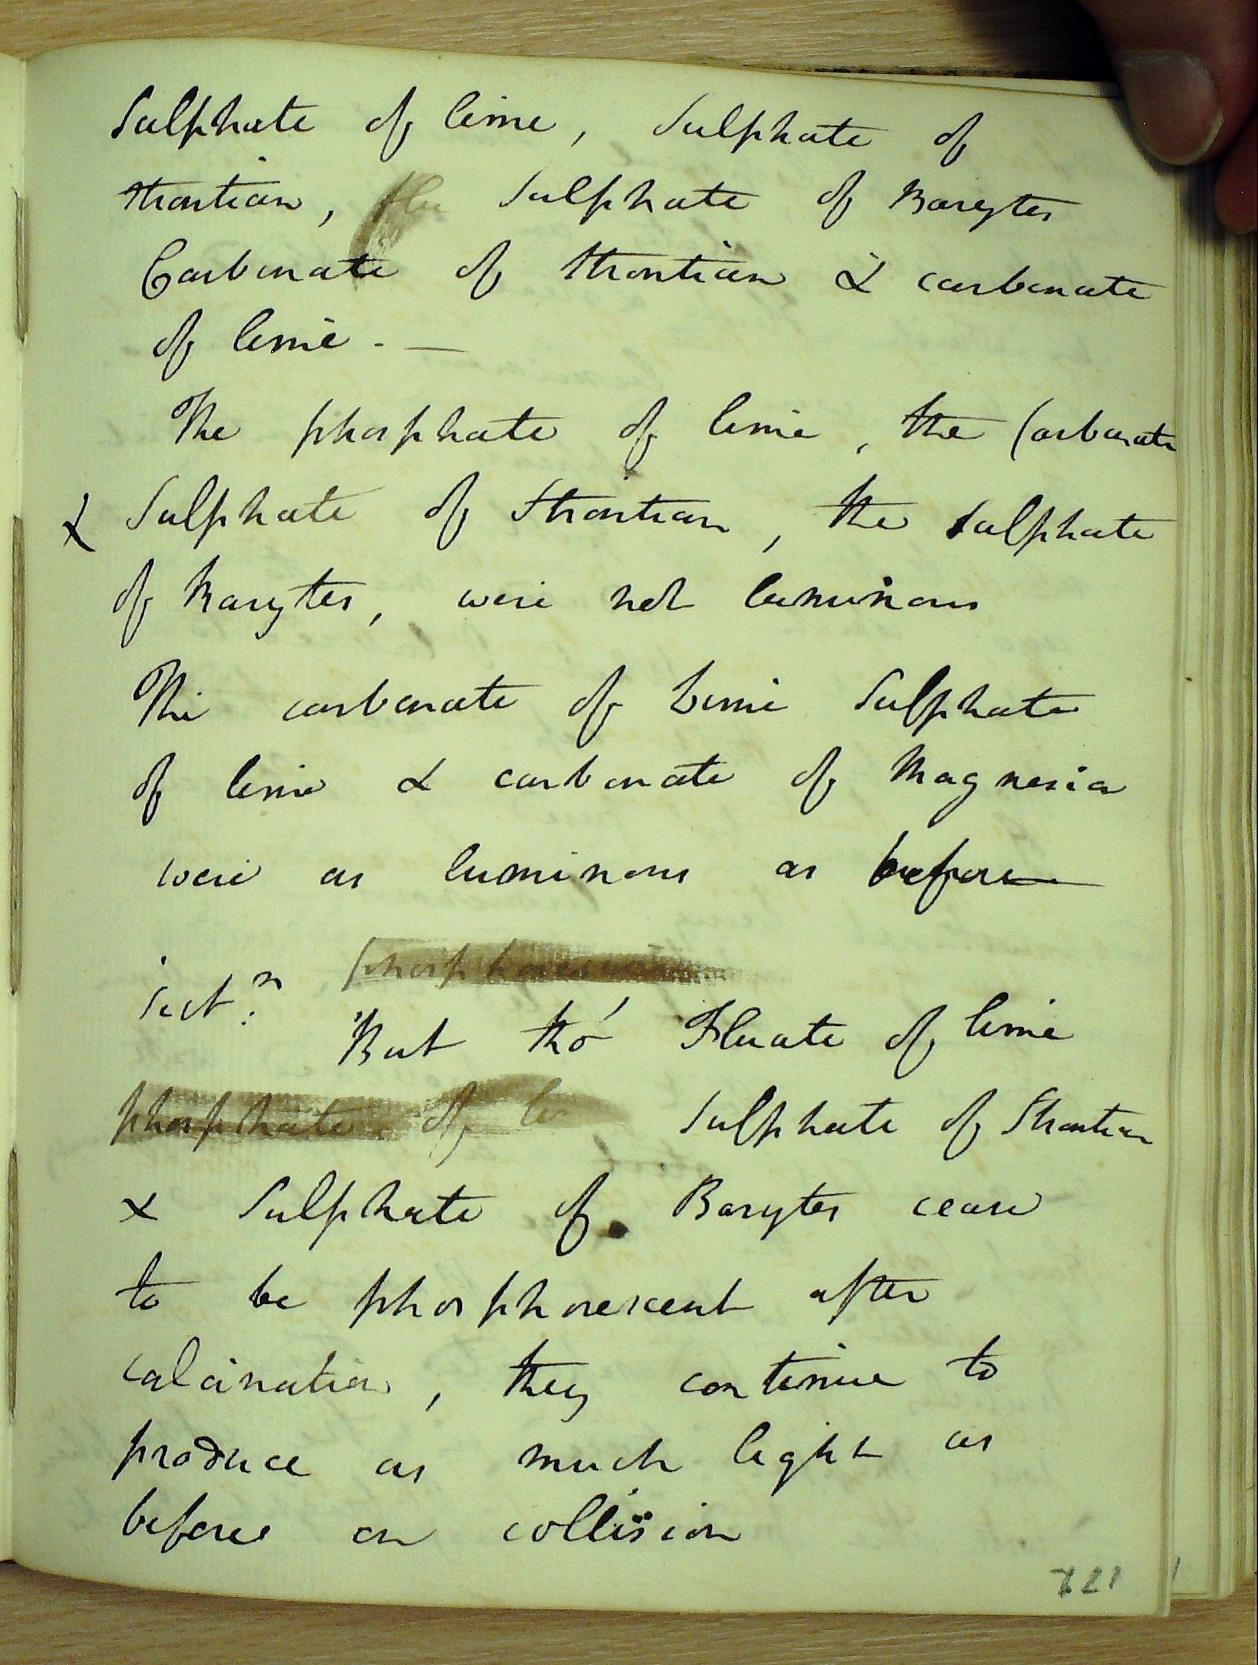 Sulphate of lime, Sulphate of
Strontian, flu Sulphate of Barytes
Carbonate of Strontian & carbonate
of lime. —
The phosphate of lime, the Carbonate
& Sulphate of Strontian, the sulphate
of Barytes, were not luminous
The carbonate of Lime Sulphate
of lime & carbonate of Magnesia
were as luminous as before
phosphorescence
Sectn.
But tho' Fluate of lime
phosphate of li Sulphate of Strontian
& Sulphate of Barytes cease
to be phosphorescent after
calcination, they continue to
produce as much light as
before on collision
121